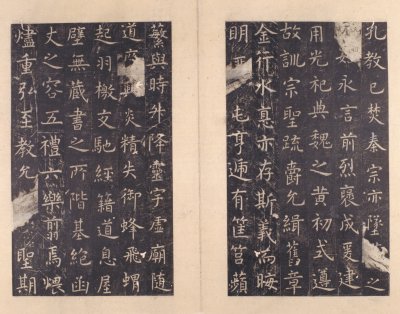 孔教已焚秦宗亦墜之
始永言前烈褒成爰建
用光祀典魏之黃初式遵
故訓宗聖疏爵允緝舊章
金行水悳亦存斯義而晦
明屯亨遞有筐筥蘋
蘩與時升降靈宇虛廟隨
道炎精失御蜂飛蝟
起羽檄交馳經籍道息屋
壁無藏書之所階基絕函
丈之容五禮六樂翦焉煨
燼重弘至教允聖期